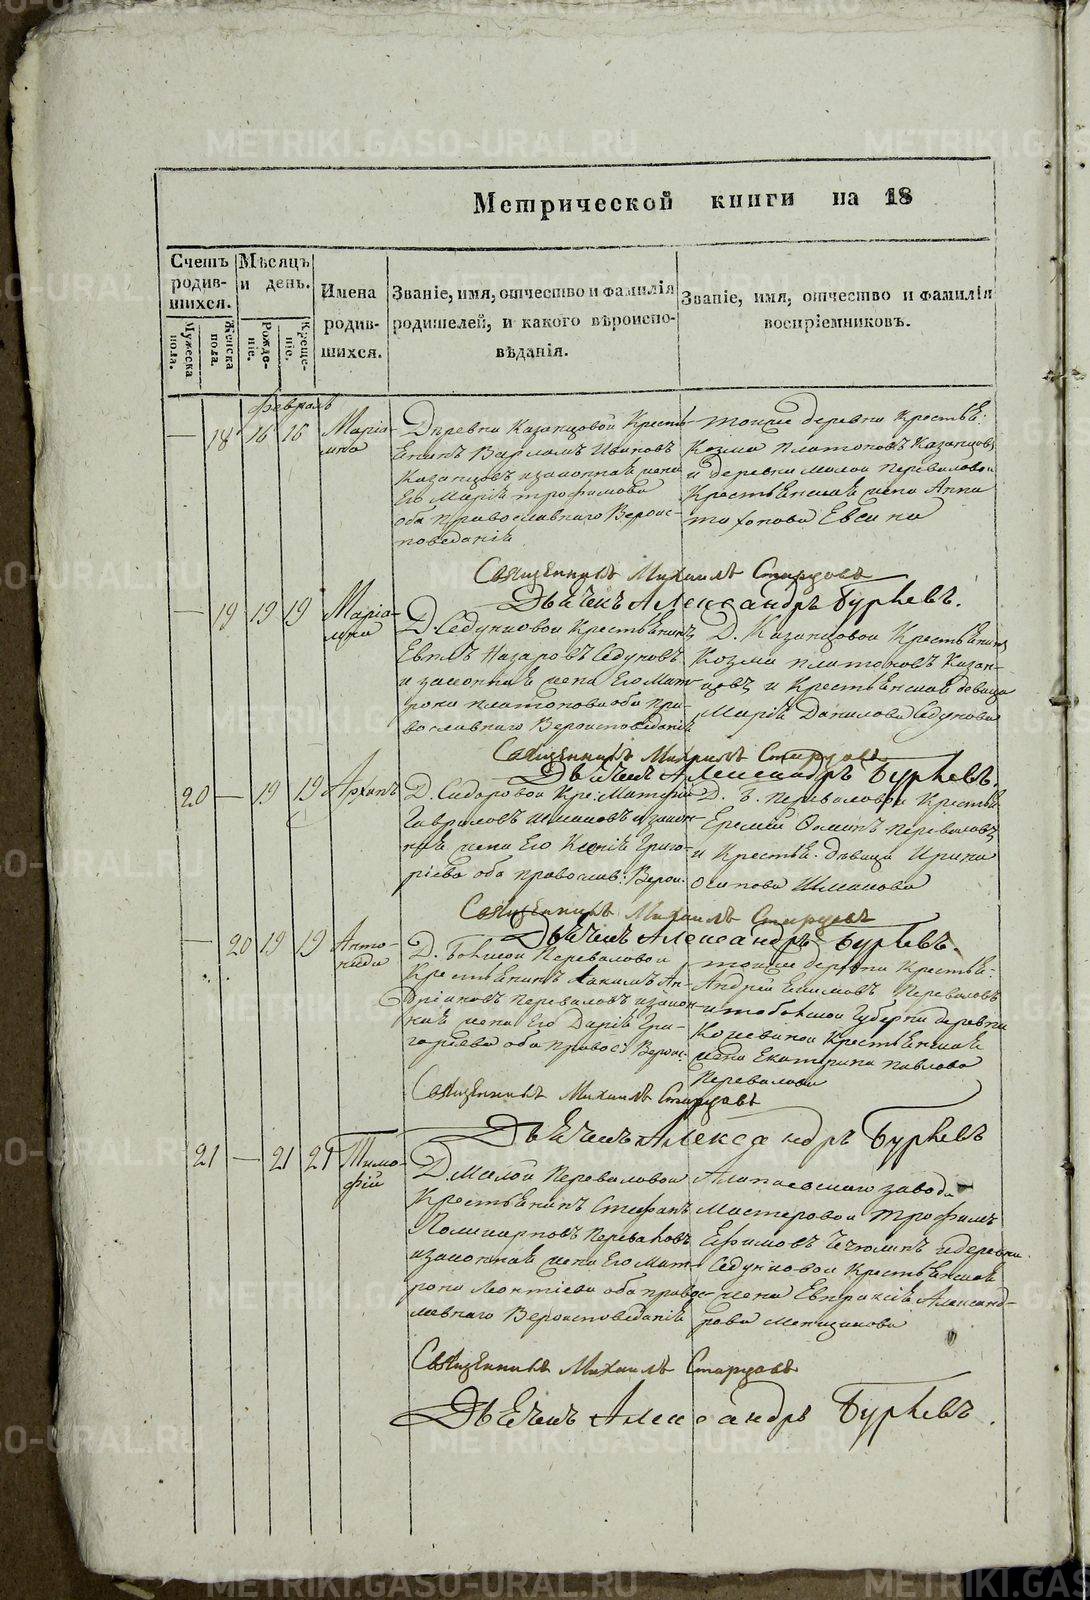 METRIKI.GASO-URAL.RU
Метрической книги на 18
Счетъ родив-шихся.
Мужеска пола.
Женска пола.
Мѣсяцъ и день.
Рожде-ніе.
Креще-ніе.
Имена родив-шихся.
Званіе, имя, отчество и фамилія родителей, и какого вѣроиспо-вѣданія.
Званіе, имя, отчество и фамилія воспріемниковъ.
февраль
— 18 16 16
Маріа-
мна
Деревни Казанцовой Кресть-
ѣнинъ Варламъ Ивановъ
Казанцовъ и законная жена
Его Марія трофимова
оба православнаго Вероис-
поведанія
тойже деревни Крестьѣ:
Козма Платоновъ Казанцовъ
и деревни малой Переваловой
Крестьѣнская жена Анна
Евсина
Священникъ Михаилъ Старцовъ
Дьячекъ Александръ Бурневъ.
— 19 19 19
Маріа-
мна
Д. Седунковой Крестьѣнинъ
Назаровъ Седуновъ
и законная жена Его Мат-
рона платонова оба пра-
вославнаго Вероисповеданія
Д. Казанцовой Крестьѣнинъ
Козма платоновъ Казан-
цовъ и Крестьѣнская девица
Марія Данилова Седунова
Священникъ Михаилъ Старцовъ
Дьячекъ Александръ Бурневъ.
20 — 19 19
Архипъ
Д. Сидоровой Кре:
Гавриловъ Шмаковъ и закон-
ная жена Его Ксенія Григо-
ріева оба православ: Верои.
Д. Б. Переваловой Крестьѣ
Еремей Перевалов
и Крестьѣ. девица Ирина
Осипова Шмакова
Священникъ Михаилъ Старцовъ
Дьячекъ Александръ Бурневъ.
— 20 19 19
Анто-
нида
Д. Большой Переваловой
Крестьѣнинъ Акимъ Ан-
дріановъ Переваловъ и закон-
ная жена Его Дарія Гри-
горьева оба правос: Вероис-
тойже деревни Крестьѣ:
Андрей Екимовъ Переваловъ
и тобольской Губерни деревни
Крестьѣнская
жена Екатерина павлова
Перевалова
Священникъ Михаилъ Старцовъ
Дьячекъ Александръ Бурневъ
21 — 21 21
Тимо-
фей
Д. Малой Переваловой
Крестьѣнинъ Стефанъ
Поликарповъ Переваловъ
и законная жена Его Мат-
рона Леонтіева оба правос-
лавнаго Вероисповеданія
Алапаевскаго завода
Мастеровой Трофимъ
Ефимовъ и деревни
Седунковой Крестьѣнская
жена Евпраксія Александ-
рова
Священникъ Михаилъ Старцовъ
Дьячекъ Александръ Бурневъ.